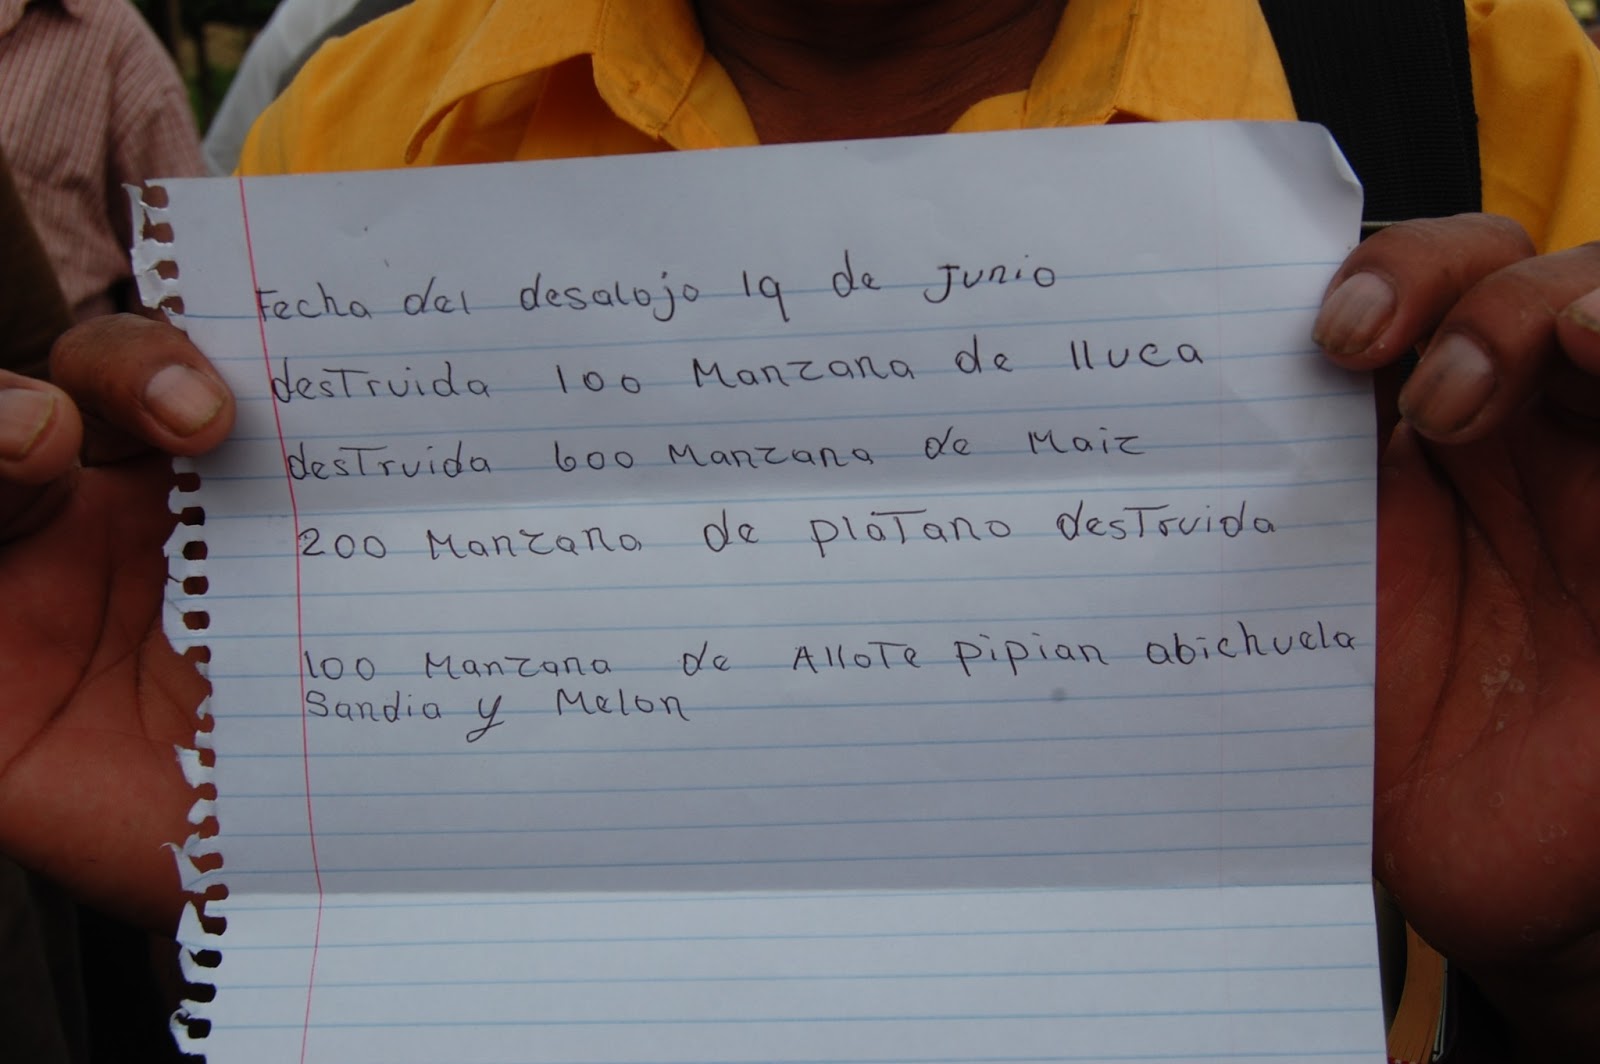 Fecha del desalojo 19 de Junio
destruida 100 Manzana de lluca
destruida 600 Manzana de Maiz
200 Manzana de plátano destruida
100 Manzana de Allote pipian abichuela
Sandia y Melon